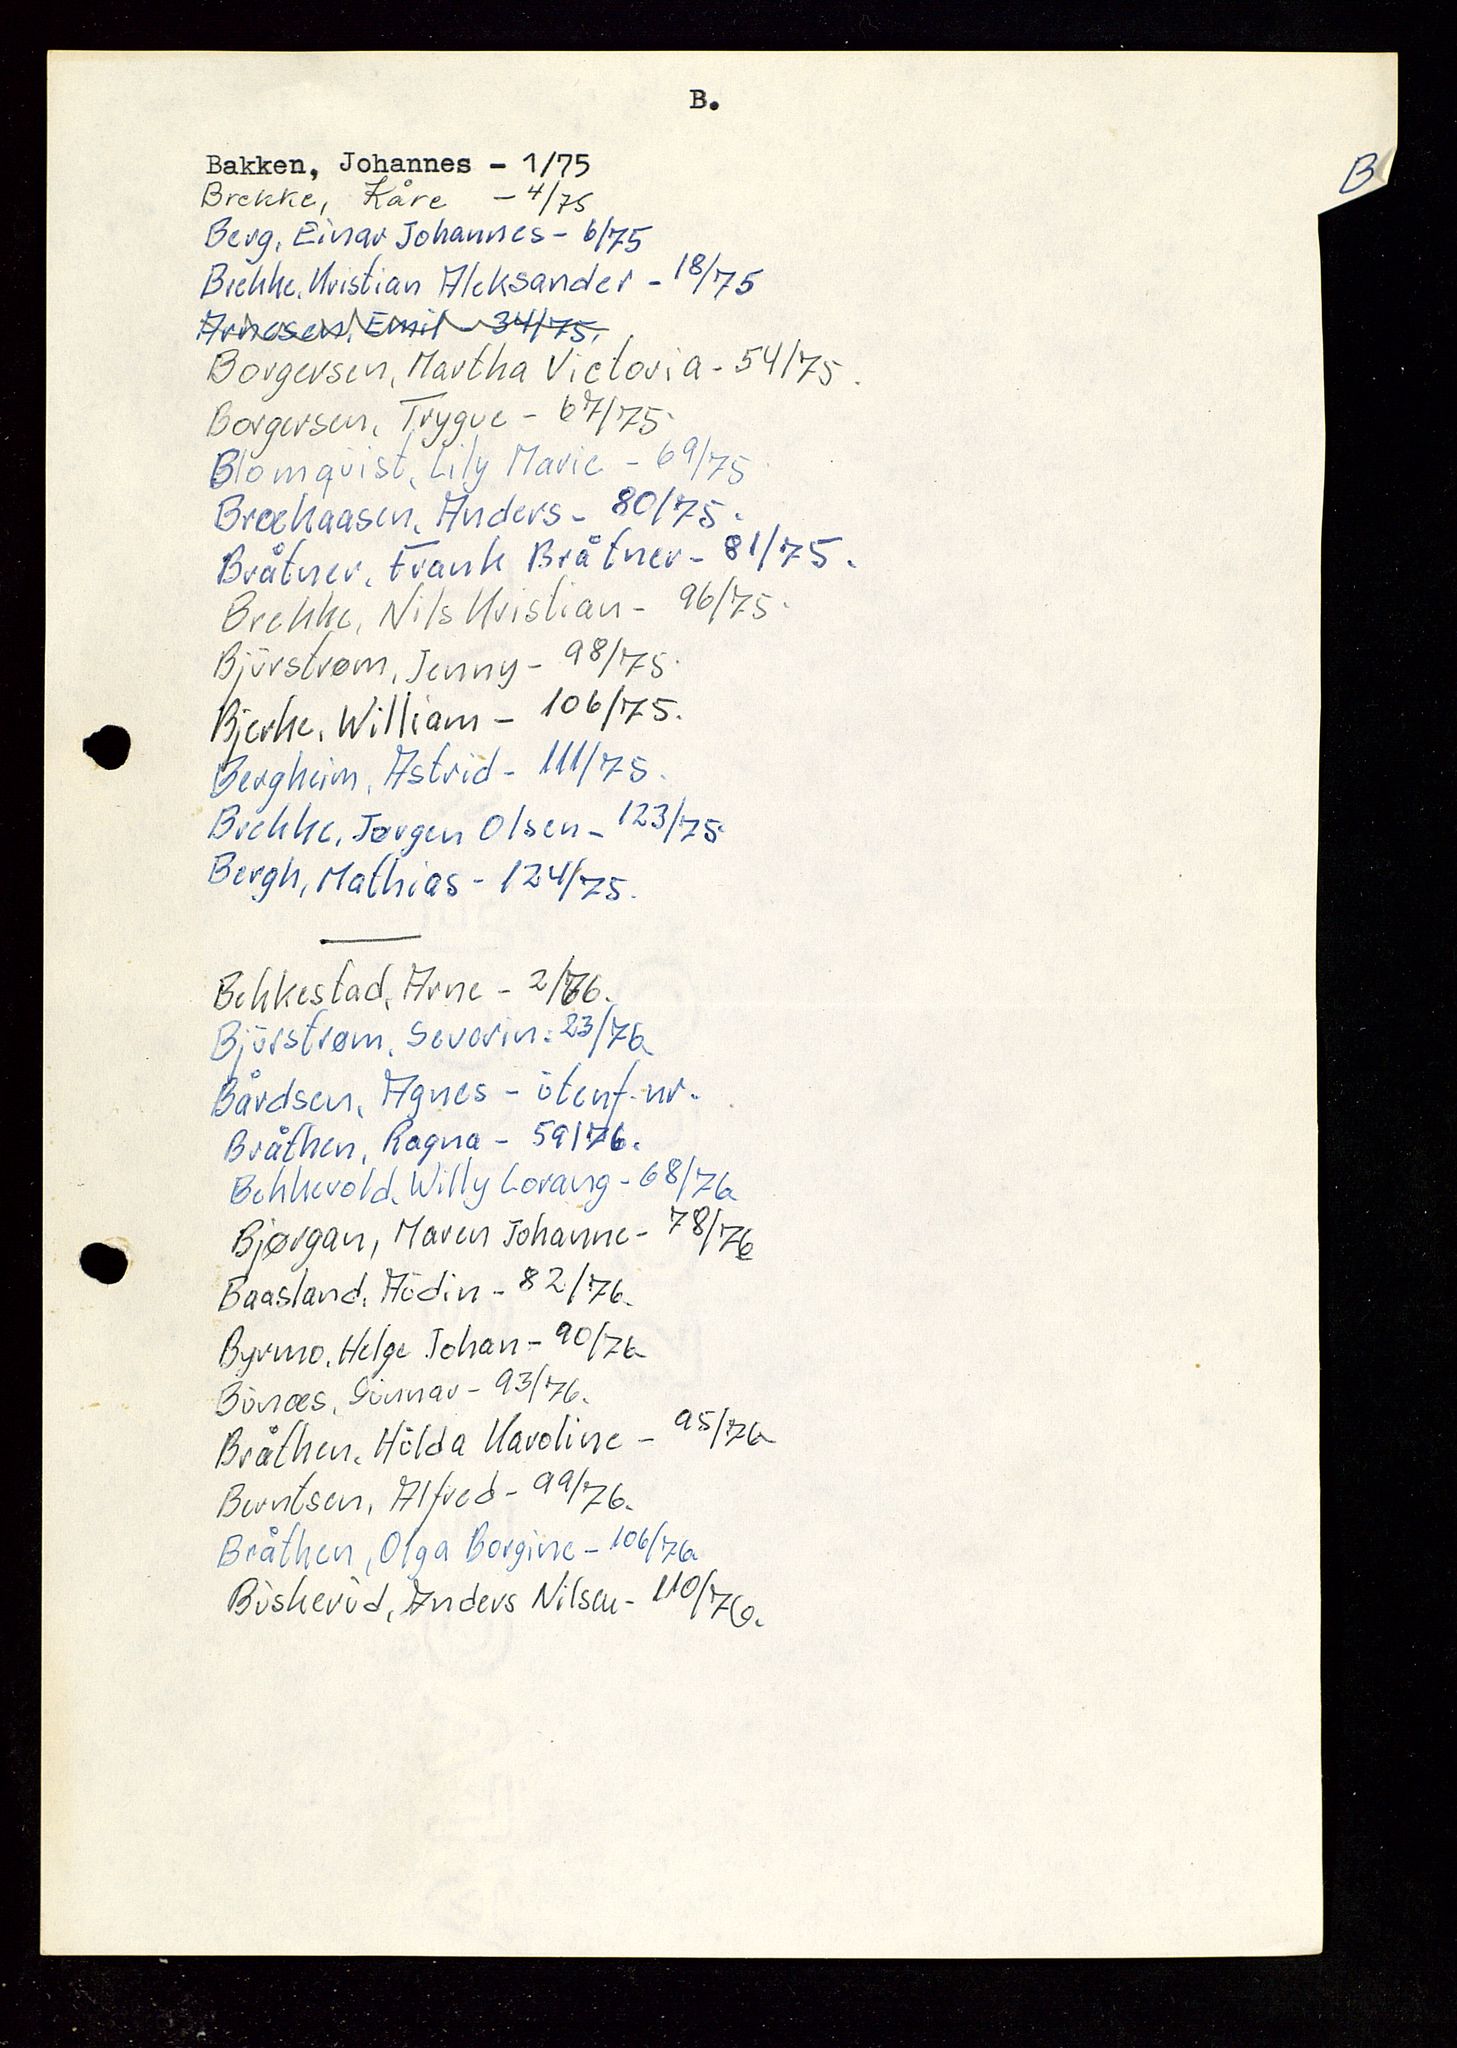 B.
B
Bakken, Johannes - 1/75
Brekke, Kåre - 4/75
Berg, Einar Johannes - 6/75
Brekke, Kristian Aleksander - 18/75
Arnesen, Emil - 34/75.
Borgersen, Martha Victoria - 54/75.
Borgersen, Trygve - 67/75.
Blomqvist, Lily Marie - 69/75.
Brækaasen, Anders - 80/75.
Bråtner, Frank Bråtner - 81/75.
Brekke, Nils Kristian - 96/75.
Bjurstrøm, Jenny - 98/75.
Bjerke, William - 106/75.
Bergheim, Astrid - 111/75.
Brekke, Jørgen Olsen - 123/75.
Bergh, Mathias - 124/75.
Bekkestad, Arne - 2/76.
Bjurstrøm, Severin: 23/76
Bårdsen, Agnes - utenf. nr.
Bråthen, Ragna - 59/76.
Bekkevold, Willy Lorang - 68/76
Bjørgan, Maren Johanne - 78/76
Baasland, Audin - 82/76.
Byrmo, Helge Johan - 90/76
Bunæs, Gunnar - 93/76.
Bråthen, Hulda Karoline - 95/76
Berntsen, Alfred - 99/76.
Bråthen, Olga Borgine - 106/76
Buskerud, Anders Nilsen - 110/76.